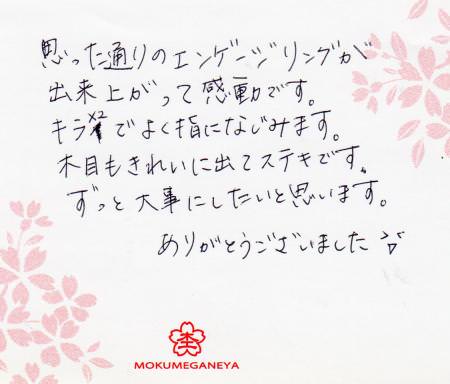 思った通りのエンゲージリングが
出来上がって感動です。
キラ×2でよく指になじみます。
木目もきれいに出てステキです。
ずっと大事にしたいと思います。
ありがとうございました
MOKUMEGANEYA